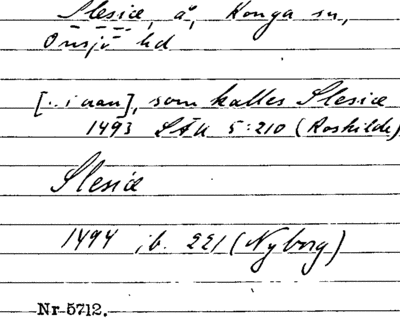 Slesiæ, å, Konga sn,
Onsjö hd
[.. i aan], som kalles Slesiæ
1493 LÄU 5:210 (Roskilde)
Slesiæ
1494 ib. 221 (Nyborg)
Nr 5712.